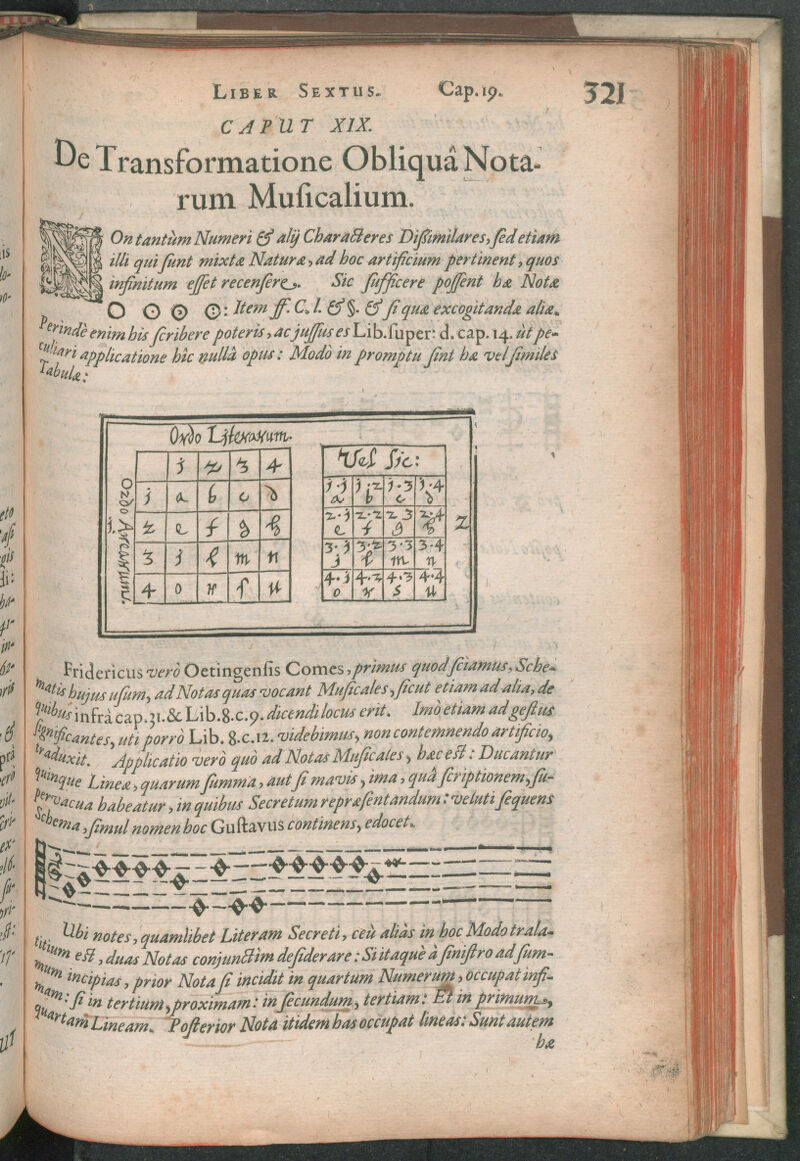 LIBER SEXTUS. Cap. 19. 321
CAPUT XIX.
De Transformatione Obliquâ Nota-
rum Muſicalium.
NOn tantùm Numeri & alij Characteres Diſsimilares, ſed etiam
illi qui ſunt mixtæ Naturæ, ad hoc artificium pertinent, quos
infinitum eſſet recenſere. Sic ſufficere poſſent hæ Notæ
: Item ff. C. l. & §. & ſi quæ excogitandæ aliæ.
Perinde enim his ſcribere poteris, ac juſſus es Lib. ſuper: d. cap. 14. ùt pe-
culiari applicatione hîc nullâ opus: Modò in promptu ſint hæ vel ſimiles
Tabulæ:
Ordo Literarum.
1 2 3 4
1 a b c d
2 e f g h
3 i l m n
4 o r ſ u
Ordo Arearum.
1.
Vel ſic:
1.1 1.2 1.3 1.4
a b c d
2.1 2.2 2.3 2.4
e f g h
3.1 3.2 3.3 3.4
i l m n
4.1 4.2 4.3 4.4
o r s u
2
Fridericus verò Oetingenſis Comes, primus quod ſciamus, Sche-
matis hujus uſum, ad Notas quas vocant Muſicales, ſicut etiam ad alia, de
quibus infrà cap. 31. & Lib. 8. c. 9. dicendi locus erit. Imò etiam ad geſtus
ſignificantes, uti porrò Lib. 8. c. 12. videbimus, non contemnendo artificio,
traduxit. Applicatio verò quò ad Notas Muſicales, hæc eſt: Ducantur
quinque Lineæ, quarum ſumma, aut ſi mavis, ima, quâ ſcriptionem, ſu-
pervacua habeatur, in quibus Secretum repræſentandum: veluti ſequens
Schema, ſimul nomen hoc Guſtavus continens, edocet.
Ubi notes, quamlibet Literam Secreti, ceù aliàs in hoc Modo trala-
titium eſt, duas Notas conjunctim deſiderare: Si itaquè à ſiniſtro ad ſum-
mum incipias, prior Nota ſi incidit in quartum Numerum, occupat infi-
mam: ſi in tertium, proximam: in ſecundum, tertiam: Et in primum,
quartam Lineam. Poſterior Nota itidem has occupat lineas: Sunt autem
hæ